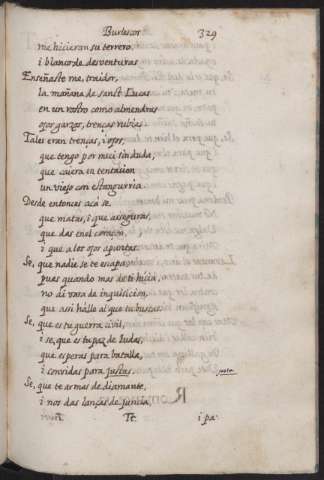 Burlescos 329
me hicieran su terrero,
i blanco de desventuras
Enseñaste me, traidor,
la mañana de sanct Lucas
en un rostro como almendras
ojos garzos, trenças rubias
Tales eran trenças, i ojos,
que tengo por mui sin duda,
que caiera en tentacion
un viejo con estangurria
Desde entonces aca se
que matas, i que aseguras,
que das en el coraçon
i que a los ojos apuntas.
Se, que nadie se te escapa
pues quando mas de ti huia,
no ai vara de inquisicion,
que asi halle al que tu buscas.
Se, que es tu guerra civil,
i se, que es tu paz de Iudas,
que esperas para batalla,
i convidas para justas
justa
Se, que te armas de diamante,
i nos das lanças de juncia,
Tt. i pa